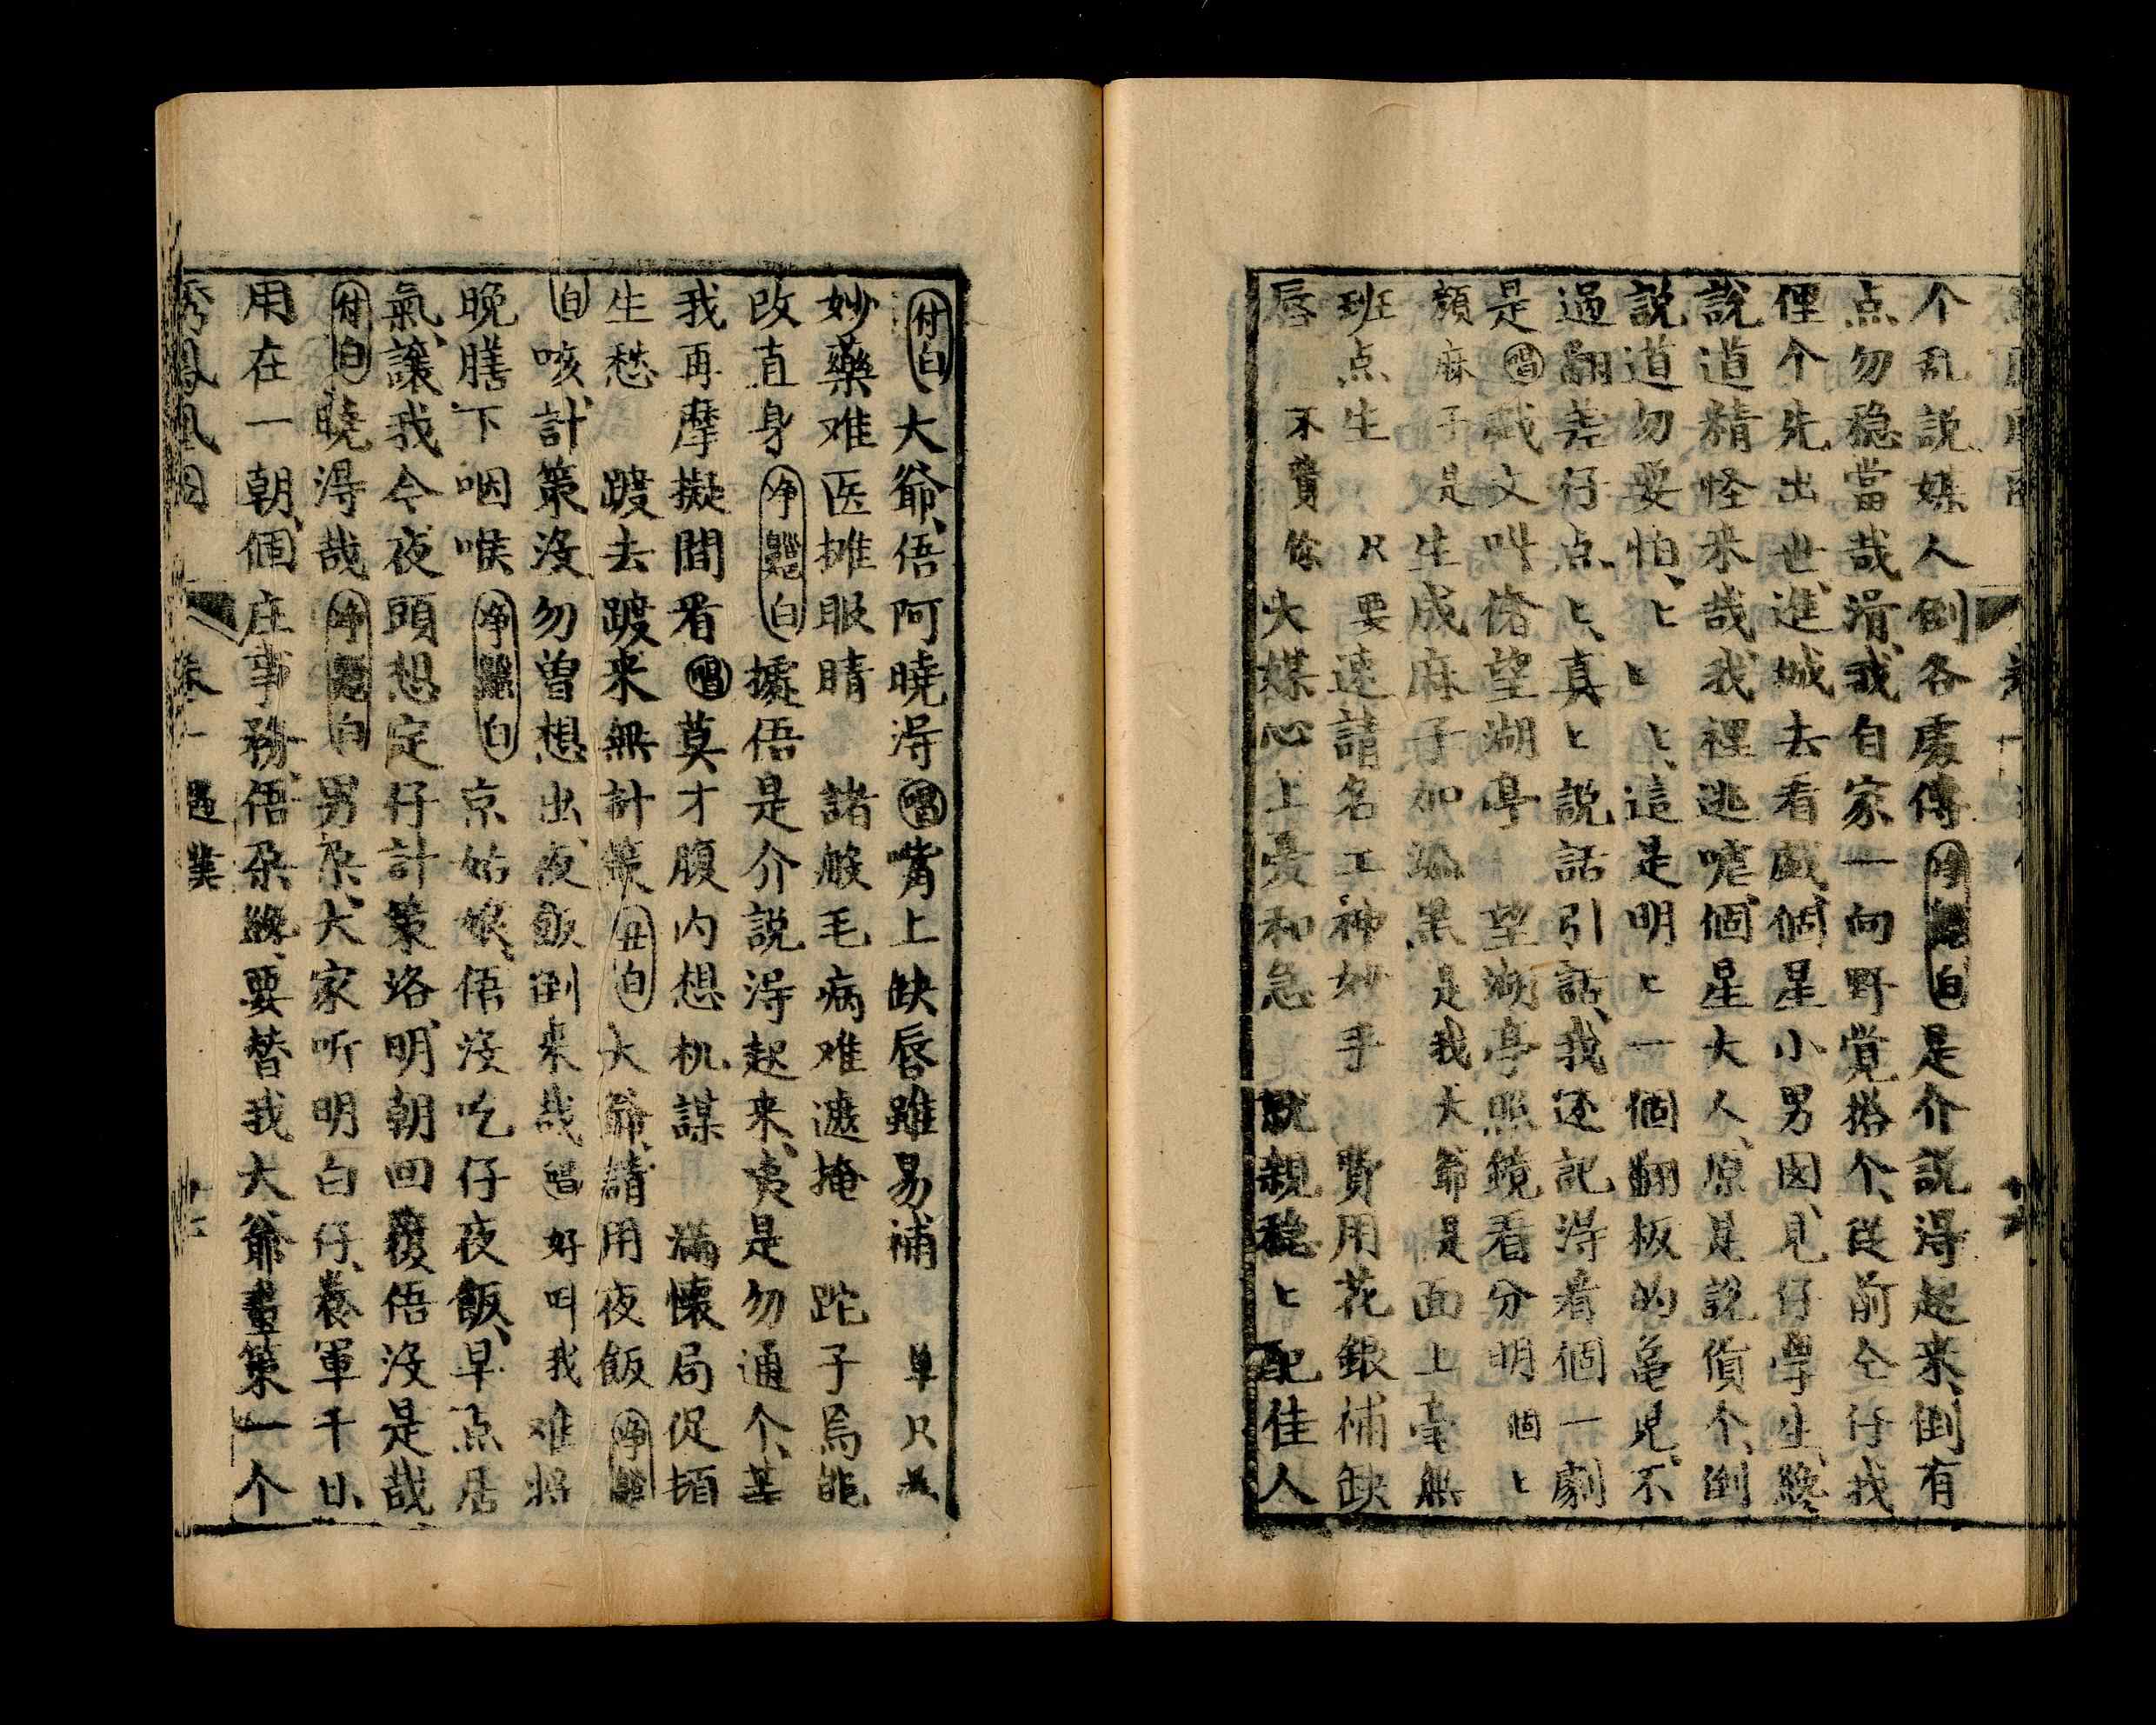 个乱説媒人倒各處傳净白是介説得起来倒有
点勿稳當哉滑我自家一向野覚搭个從前仝仔我
俚个先出世進城去看戯個星小男囡見仔學生纔
說道精怪来哉我裡逃嘘個星大人原是說値个倒
説道勿要怕匕匕匕這是明匕一個翻板的龟児不
過翻差仔点匕真匕説話引話我还記得看個一劇
是唱戯文叫偺望湖亭 望湖亭照鏡看分明個匕
顏麻子是生成麻子加添黒是我大爺是面上毫無
班点生只要速請名工神妙手 費用花銀補缺
唇不費你大媒心上憂和急 說親穏匕配佳人
付白大爺俉阿曉得唱嘴上缺唇雖易補 单只
妙藥难医摊眼睛 諸般毛病难遮掩 跎子焉能
改直身净白據俉是介説得起来夷是勿通个
我再摩擬閒看唱莫才腹内想机謀 滿懐局促頓
生愁 踱去踱来無計策丑白大爺請用夜飯净
白咳計策没勿曾想出夜飯倒来哉唱好叫我难将
晚膳下咽喉净白京姑娘俉没吃仔夜飯早点居
氣讓我今夜頭想定仔計策洛明朝回覆俉没是哉
付白曉得哉净白男朵大家听明白仔養軍千日
用在一朝個庄事務俉朵終要替我大爺畫策一个
秀鳳凰因 卷一 過業